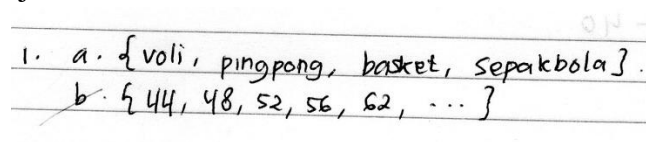 1. a. {voli, pingpong, basket, sepakbola}.
b. {44, 48, 52, 56, 62, ...}